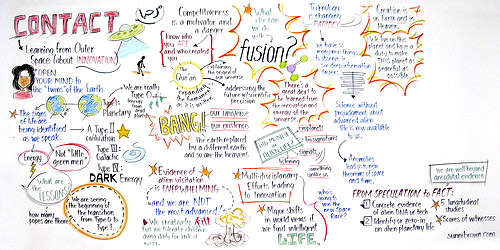 CONTACT
Learning from Outer
Space (about INNOVATION)
OPEN
YOUR MIND to
the "twins" of the Earth
The signs
of life are
being
identified as
we speak.
Energy
Not "little
green men"
What are
the
LESSONS?
how many
popes are there?
A Type II
civilization
We are really
Type 0
Type I:
Planetary
Type II:
Type III:
Galactic
Type IV:
DARK Energy
We are seeing
the beginning of
the transition
from Type 0 to
Type 1.
Competitiveness
is a motivator and
a danger
know who
you ARE
and who created
you
The
Qur'an
exploring
the origin of
the universe
expanding
the
heavens
as it is
BANG!
our universe
our existence
the earth replaced
by a different earth
and so are the heavens
addressing the
future w/scientific
precision
What
else can
we do
with
fusion?
There's a
great deal to
be learned from
the innovation and
energy of the
universe
Technology
is changing
RAPIDLY
we have so
many things
to discern in
the deep information
layers
Science without
prejudgment about
advanced alien
life is now
available to us.
Anomalies
lead us to new
theories of space
and time.
Creation is
on Earth and in
Heaven.
We have this
planet and have a
duty to make
this planet as
peaceful as
possible.
implants
biosignatures
signals
listening
something
unlike us
Evidence of
alien visitation is
OVERWHELMING
and we are NOT
the most advanced
Multi-disciplinary
Efforts leading
to Innovation
Major shifts
in world views if
we find intelligent
LIFE.
who's
going to
win the
Space
Race?
we are well beyond
anecdotal evidence
FROM SPECULATION to FACT:
1 Concrete evidence
of alien DNA or tech
2 Identify or zero-in
on alien planetary life
longitudinal
studies
Scores of witnesses
sunnibrown.com